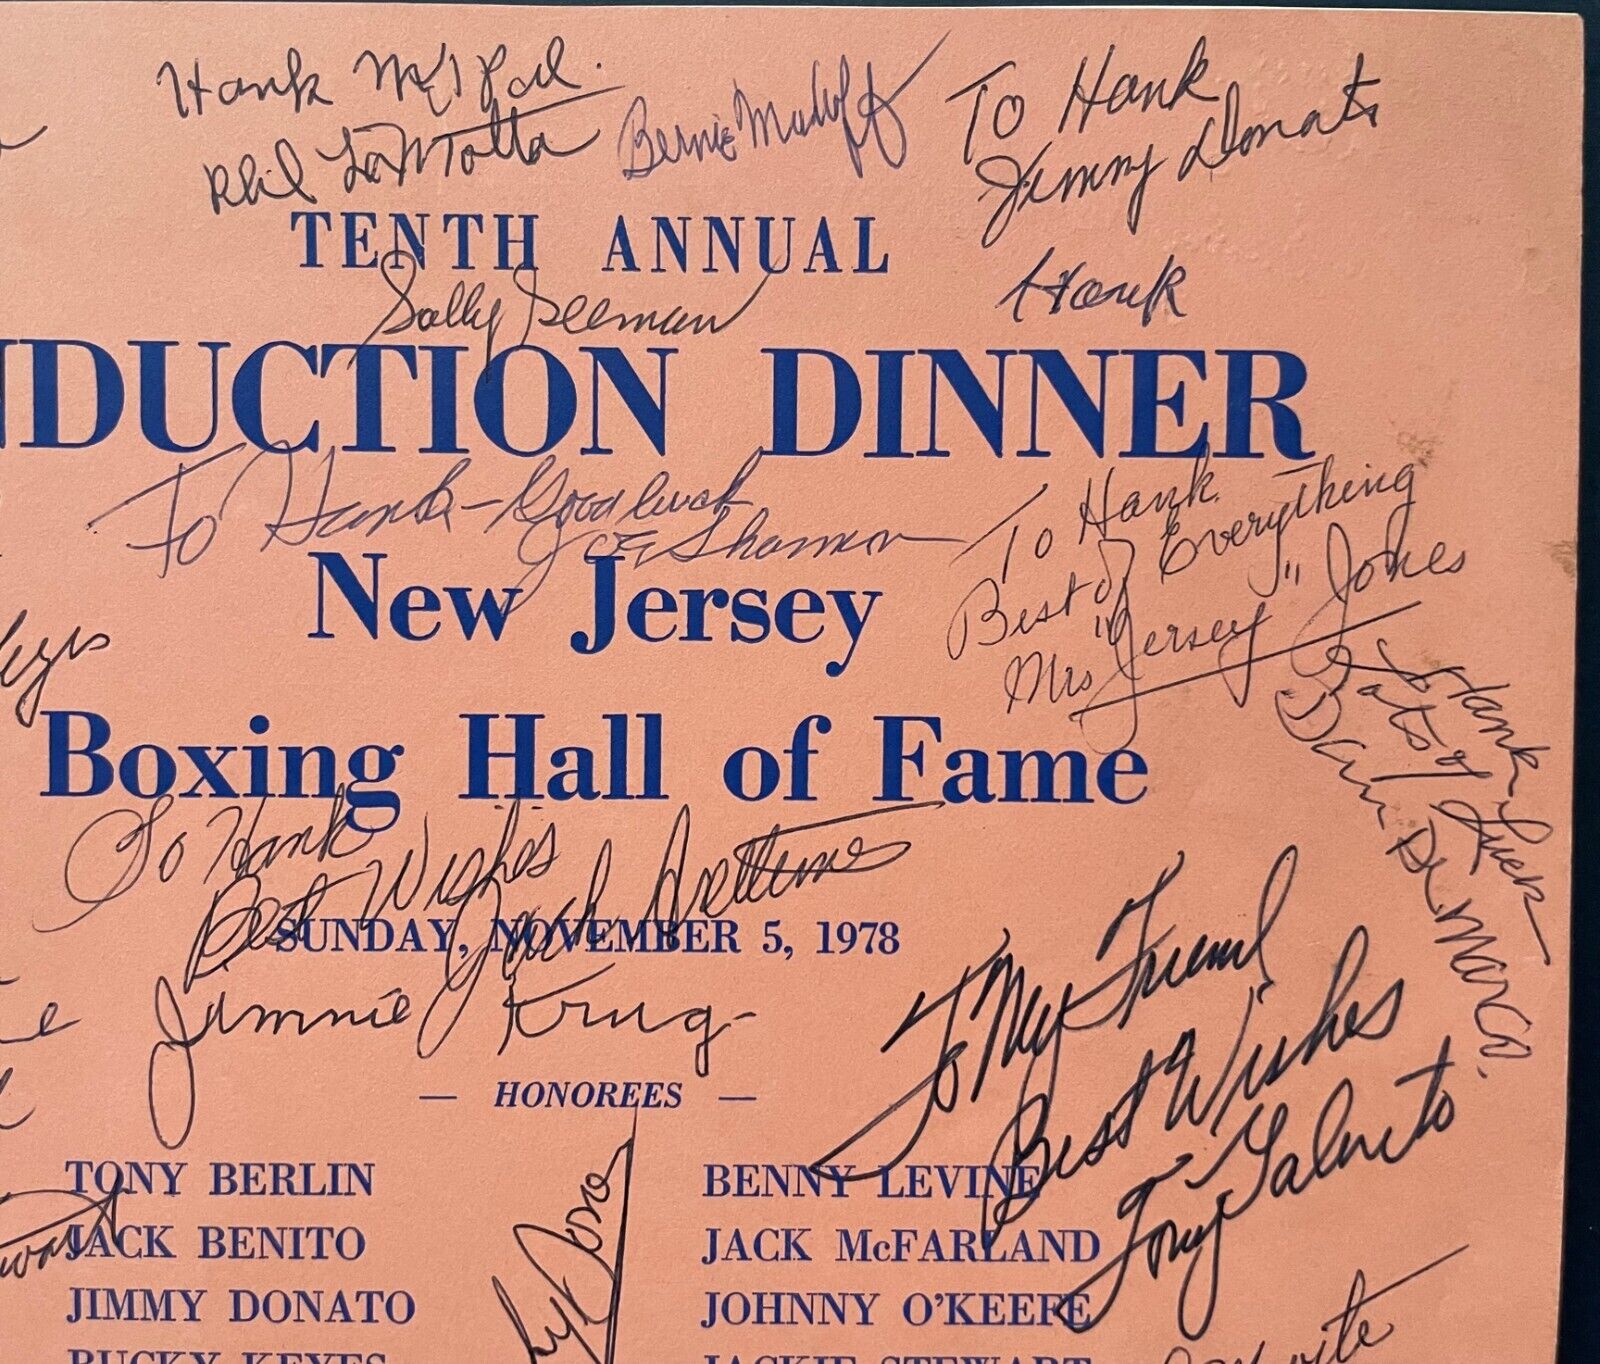 Hank
Phil LaMotta
Bernie
To Hank
Jimmy Donato
TENTH ANNUAL
Hank
Sally Seeman
NDUCTION DINNER
To Hank - Good luck
Shannon
To Hank
Best of Everything
Mrs "Jersey" Jones
New Jersey
To Hank
Lots of Luck
DeMarco.
Boxing Hall of Fame
To Hank
Best Wishes
Jack
SUNDAY, NOVEMBER 5, 1978
Jammie Krug
To My Friend
Best Wishes
Tony Galento
— HONOREES —
TONY BERLIN
JACK BENITO
JIMMY DONATO
BUCKY KEYES
BENNY LEVINE
JACK McFARLAND
JOHNNY O'KEEFE
JACKIE STEWART